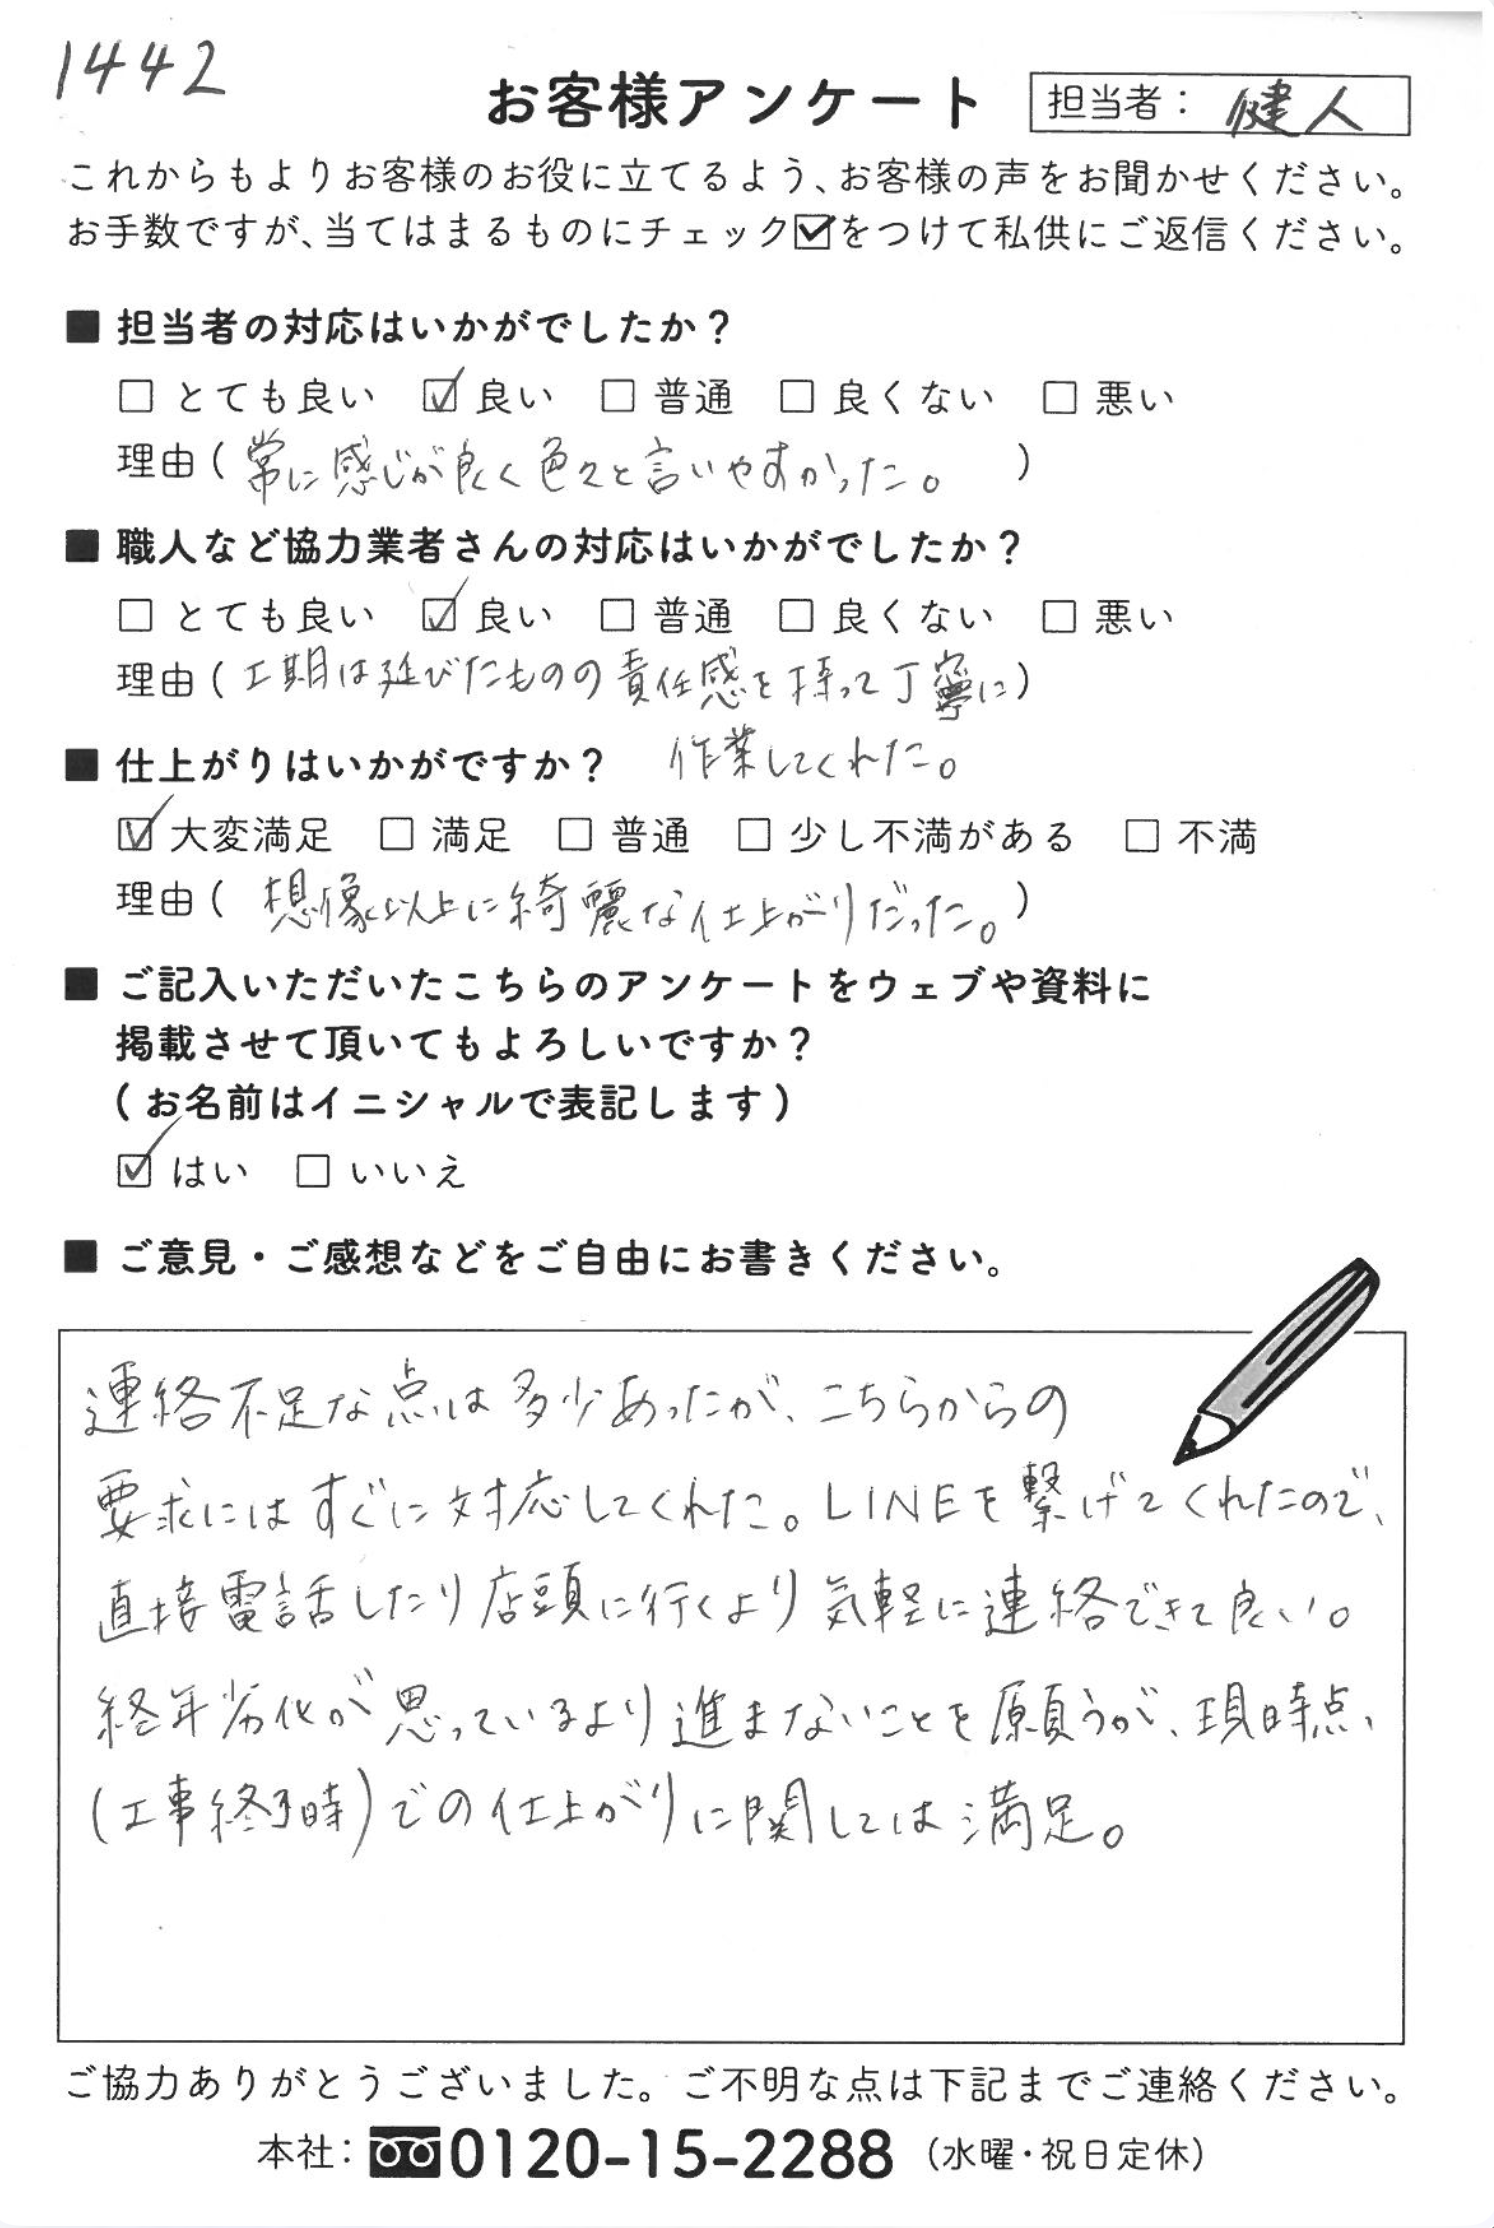 1442
お客様アンケート
担当者： 健人
これからもよりお客様のお役に立てるよう、お客様の声をお聞かせください。
お手数ですが、当てはまるものにチェック☑をつけて私供にご返信ください。
■ 担当者の対応はいかがでしたか？
□ とても良い ☑ 良い □ 普通 □ 良くない □ 悪い
理由（常に感じが良く色々と言いやすかった。）
■ 職人など協力業者さんの対応はいかがでしたか？
□ とても良い ☑ 良い □ 普通 □ 良くない □ 悪い
理由（工期は延びたものの責任感を持って丁寧に）
作業してくれた。
■ 仕上がりはいかがですか？
☑ 大変満足 □ 満足 □ 普通 □ 少し不満がある □ 不満
理由（想像以上に綺麗な仕上がりだった。）
■ ご記入いただいたこちらのアンケートをウェブや資料に
掲載させて頂いてもよろしいですか？
（お名前はイニシャルで表記します）
☑ はい □ いいえ
■ ご意見・ご感想などをご自由にお書きください。
連絡不足な点は多少あったが、こちらからの
要求にはすぐに対応してくれた。LINEを繋げてくれたので、
直接電話したり店頭に行くより気軽に連絡できて良い。
経年劣化が思っているより進まないことを願うが、現時点、
（工事終了時）での仕上がりに関しては満足。
ご協力ありがとうございました。ご不明な点は下記までご連絡ください。
本社： 0120-15-2288（水曜・祝日定休）